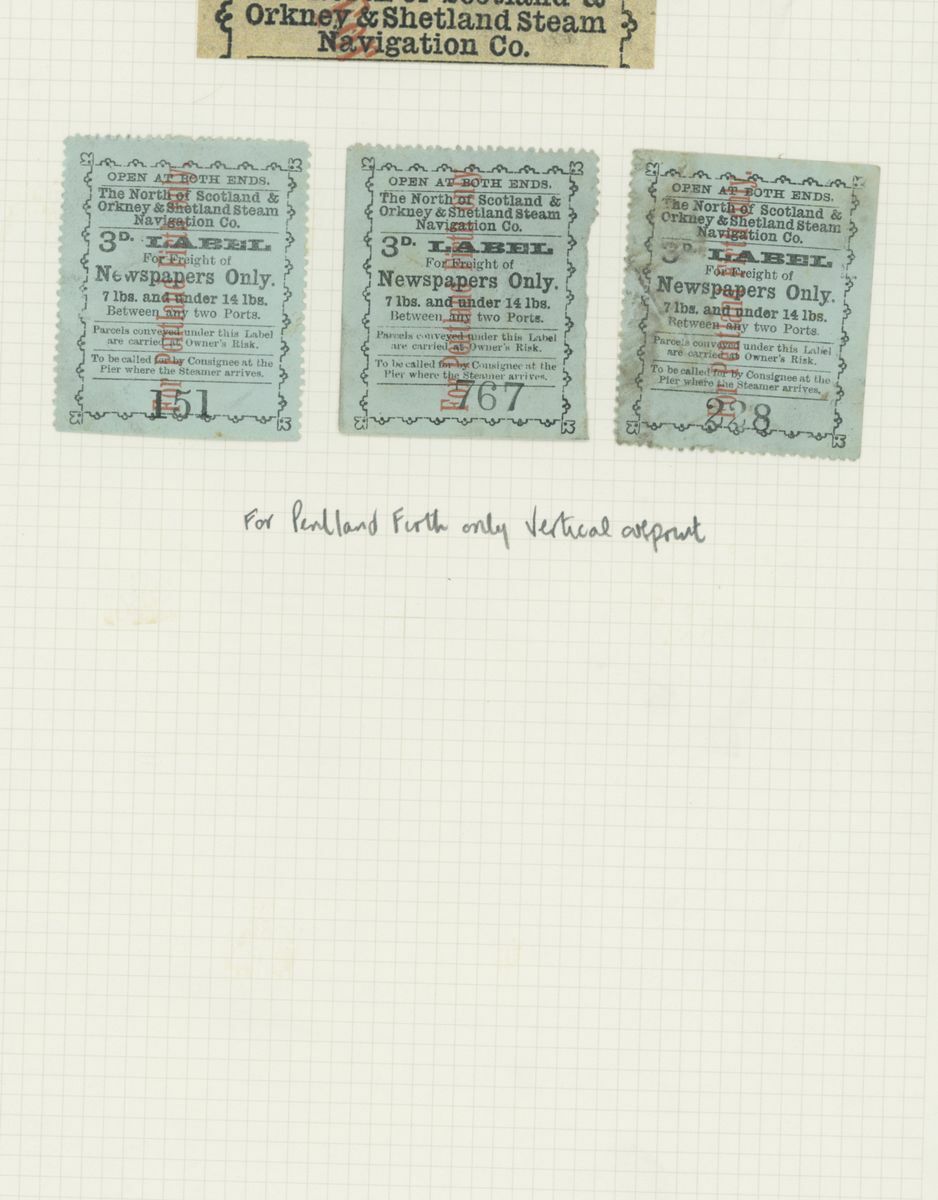 North of Scotland &
Orkney & Shetland Steam
Navigation Co.
OPEN AT BOTH ENDS.
The North of Scotland &
Orkney & Shetland Steam
Navigation Co.
3D. LABEL
For Freight of
Newspapers Only.
7 lbs. and under 14 lbs.
Between any two Ports.
Parcels conveyed under this Label
are carried at Owner's Risk.
To be called for by Consignee at the
Pier where the Steamer arrives.
151
For Pentland Firth only
OPEN AT BOTH ENDS.
The North of Scotland &
Orkney & Shetland Steam
Navigation Co.
3D. LABEL
For Freight of
Newspapers Only.
7 lbs. and under 14 lbs.
Between any two Ports.
Parcels conveyed under this Label
are carried at Owner's Risk.
To be called for by Consignee at the
Pier where the Steamer arrives.
767
For Pentland Firth only
OPEN AT BOTH ENDS.
The North of Scotland &
Orkney & Shetland Steam
Navigation Co.
3D. LABEL
For Freight of
Newspapers Only.
7 lbs. and under 14 lbs.
Between any two Ports.
Parcels conveyed under this Label
are carried at Owner's Risk.
To be called for by Consignee at the
Pier where the Steamer arrives.
228
For Pentland Firth only
For Pentland Firth only Vertical overprint